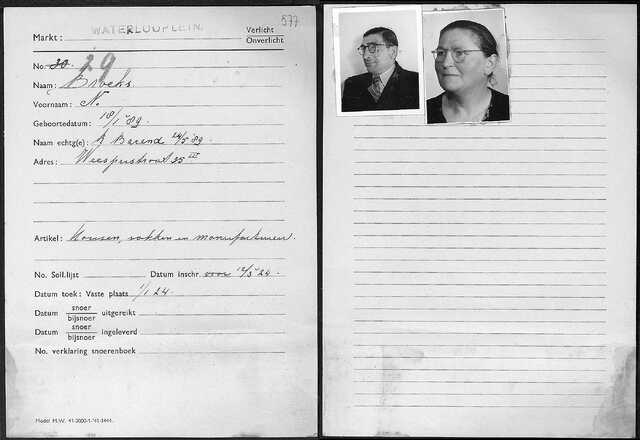 577
WATERLOOPLEIN.
Markt:
Verlicht
Onverlicht
No. 30. 29
Naam: Broeks
Voornaam: N.
Geboortedatum: 18/1 '89
Naam echtg(e): Barend 24/5 '89
Adres: Weesperstraat 95 III
Artikel: Kousen, sokken en manufacturen.
No. Soll.lijst Datum inschr. voor 12/5 '24.
Datum toek: Vaste plaats 1/1 24.
Datum snoer bijsnoer uitgereikt
Datum snoer bijsnoer ingeleverd
No. verklaring snoerenboek
Model M.W. 41-3000-1-'41-1444.